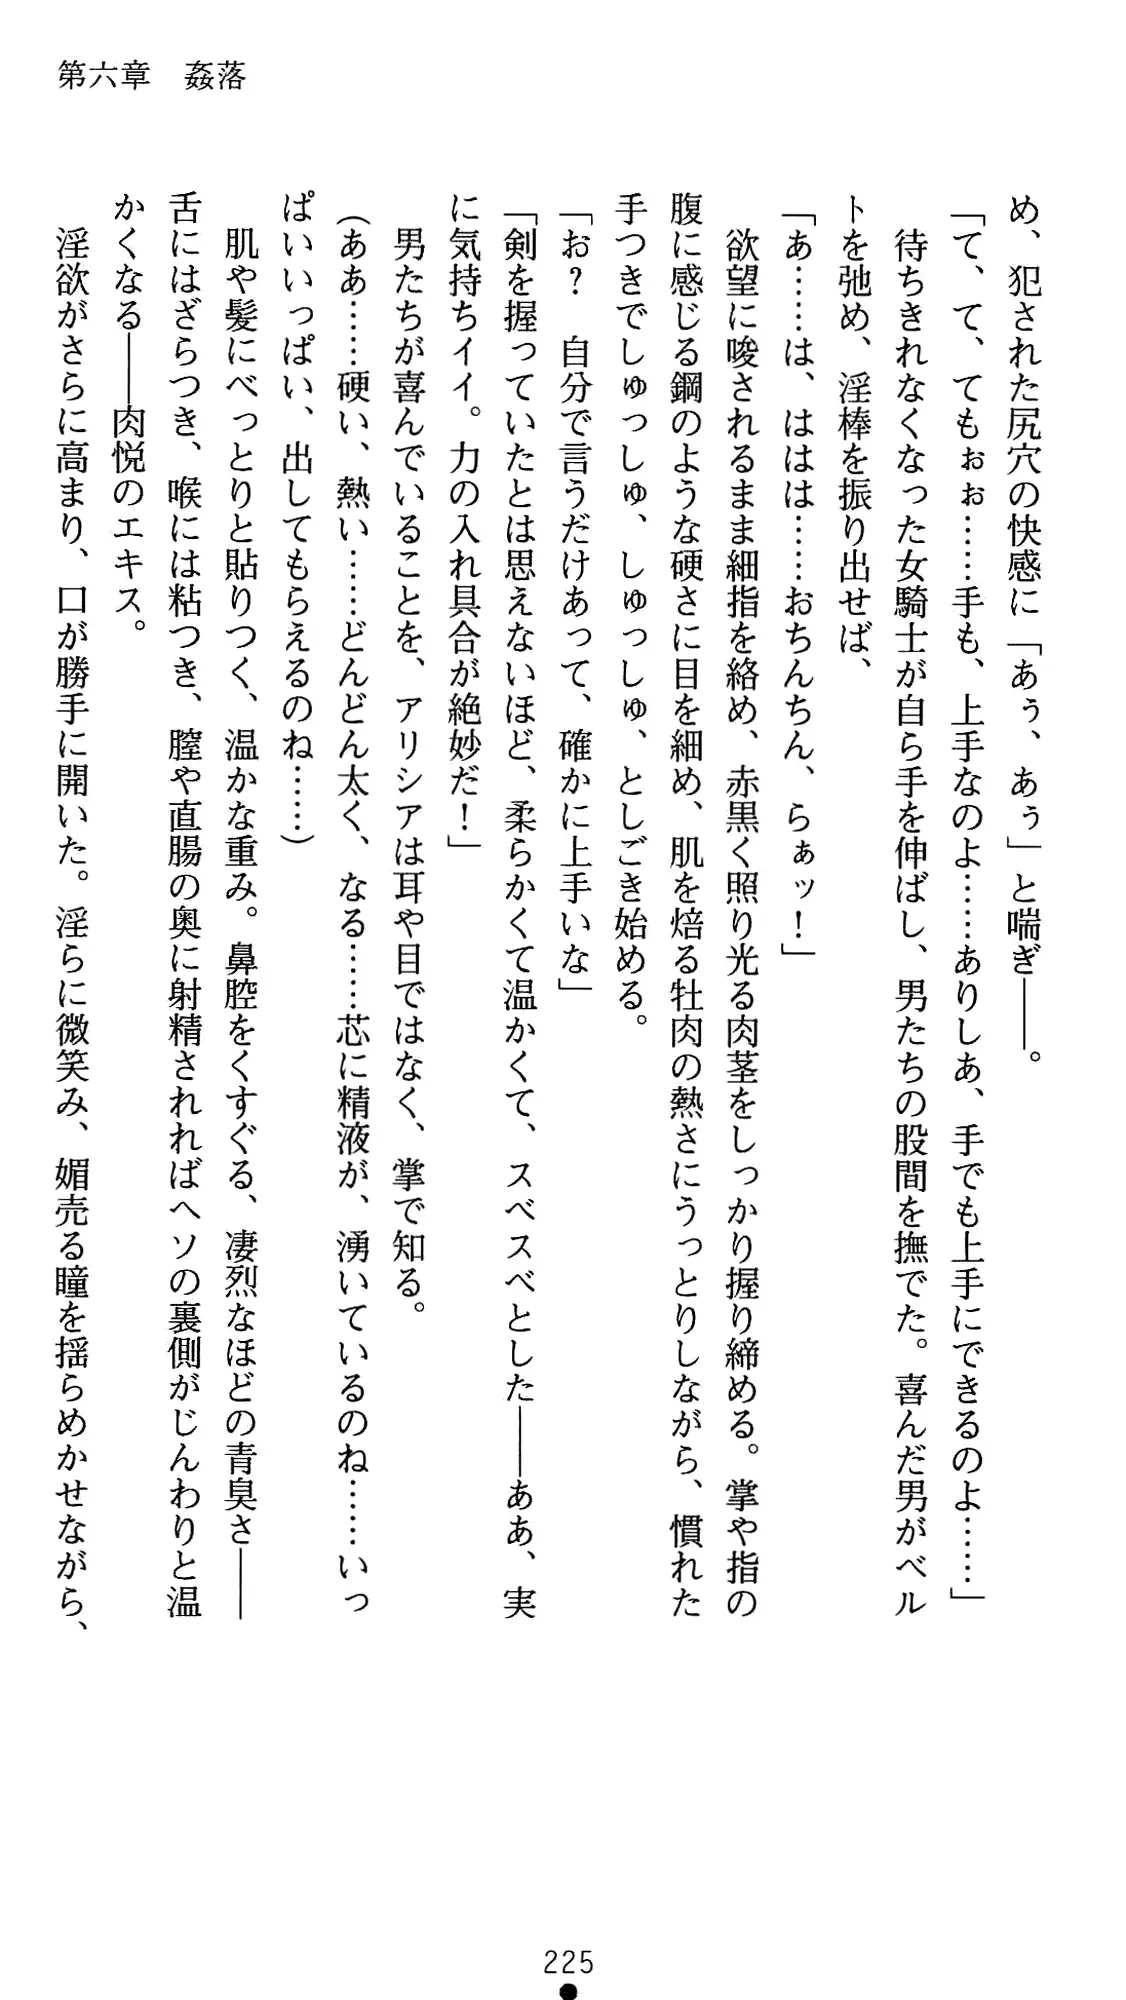 第六章　姦落
め、犯された尻穴の快感に「あぅ、あぅ」と喘ぎ――。
「て、て、てもぉぉ……手も、上手なのよ……ありしあ、手でも上手にできるのよ……」
　待ちきれなくなった女騎士が自ら手を伸ばし、男たちの股間を撫でた。喜んだ男がベル
トを弛め、淫棒を振り出せば、
「あ……は、ははは……おちんちん、らぁッ！」
　欲望に唆されるまま細指を絡め、赤黒く照り光る肉茎をしっかり握り締める。掌や指の
腹に感じる鋼のような硬さに目を細め、肌を焙る牡肉の熱さにうっとりしながら、慣れた
手つきでしゅっしゅ、しゅっしゅ、としごき始める。
「お？　自分で言うだけあって、確かに上手いな」
「剣を握っていたとは思えないほど、柔らかくて温かくて、スベスベとした――ああ、実
に気持ちイイ。力の入れ具合が絶妙だ！」
　男たちが喜んでいることを、アリシアは耳や目ではなく、掌で知る。
（ああ……硬い、熱い……どんどん太く、なる……芯に精液が、湧いているのね……いっ
ぱいいっぱい、出してもらえるのね……）
　肌や髪にべっとりと貼りつく、温かな重み。鼻腔をくすぐる、凄烈なほどの青臭さ――
舌にはざらつき、喉には粘つき、膣や直腸の奥に射精されればヘソの裏側がじんわりと温
かくなる――肉悦のエキス。
　淫欲がさらに高まり、口が勝手に開いた。淫らに微笑み、媚売る瞳を揺らめかせながら、
225